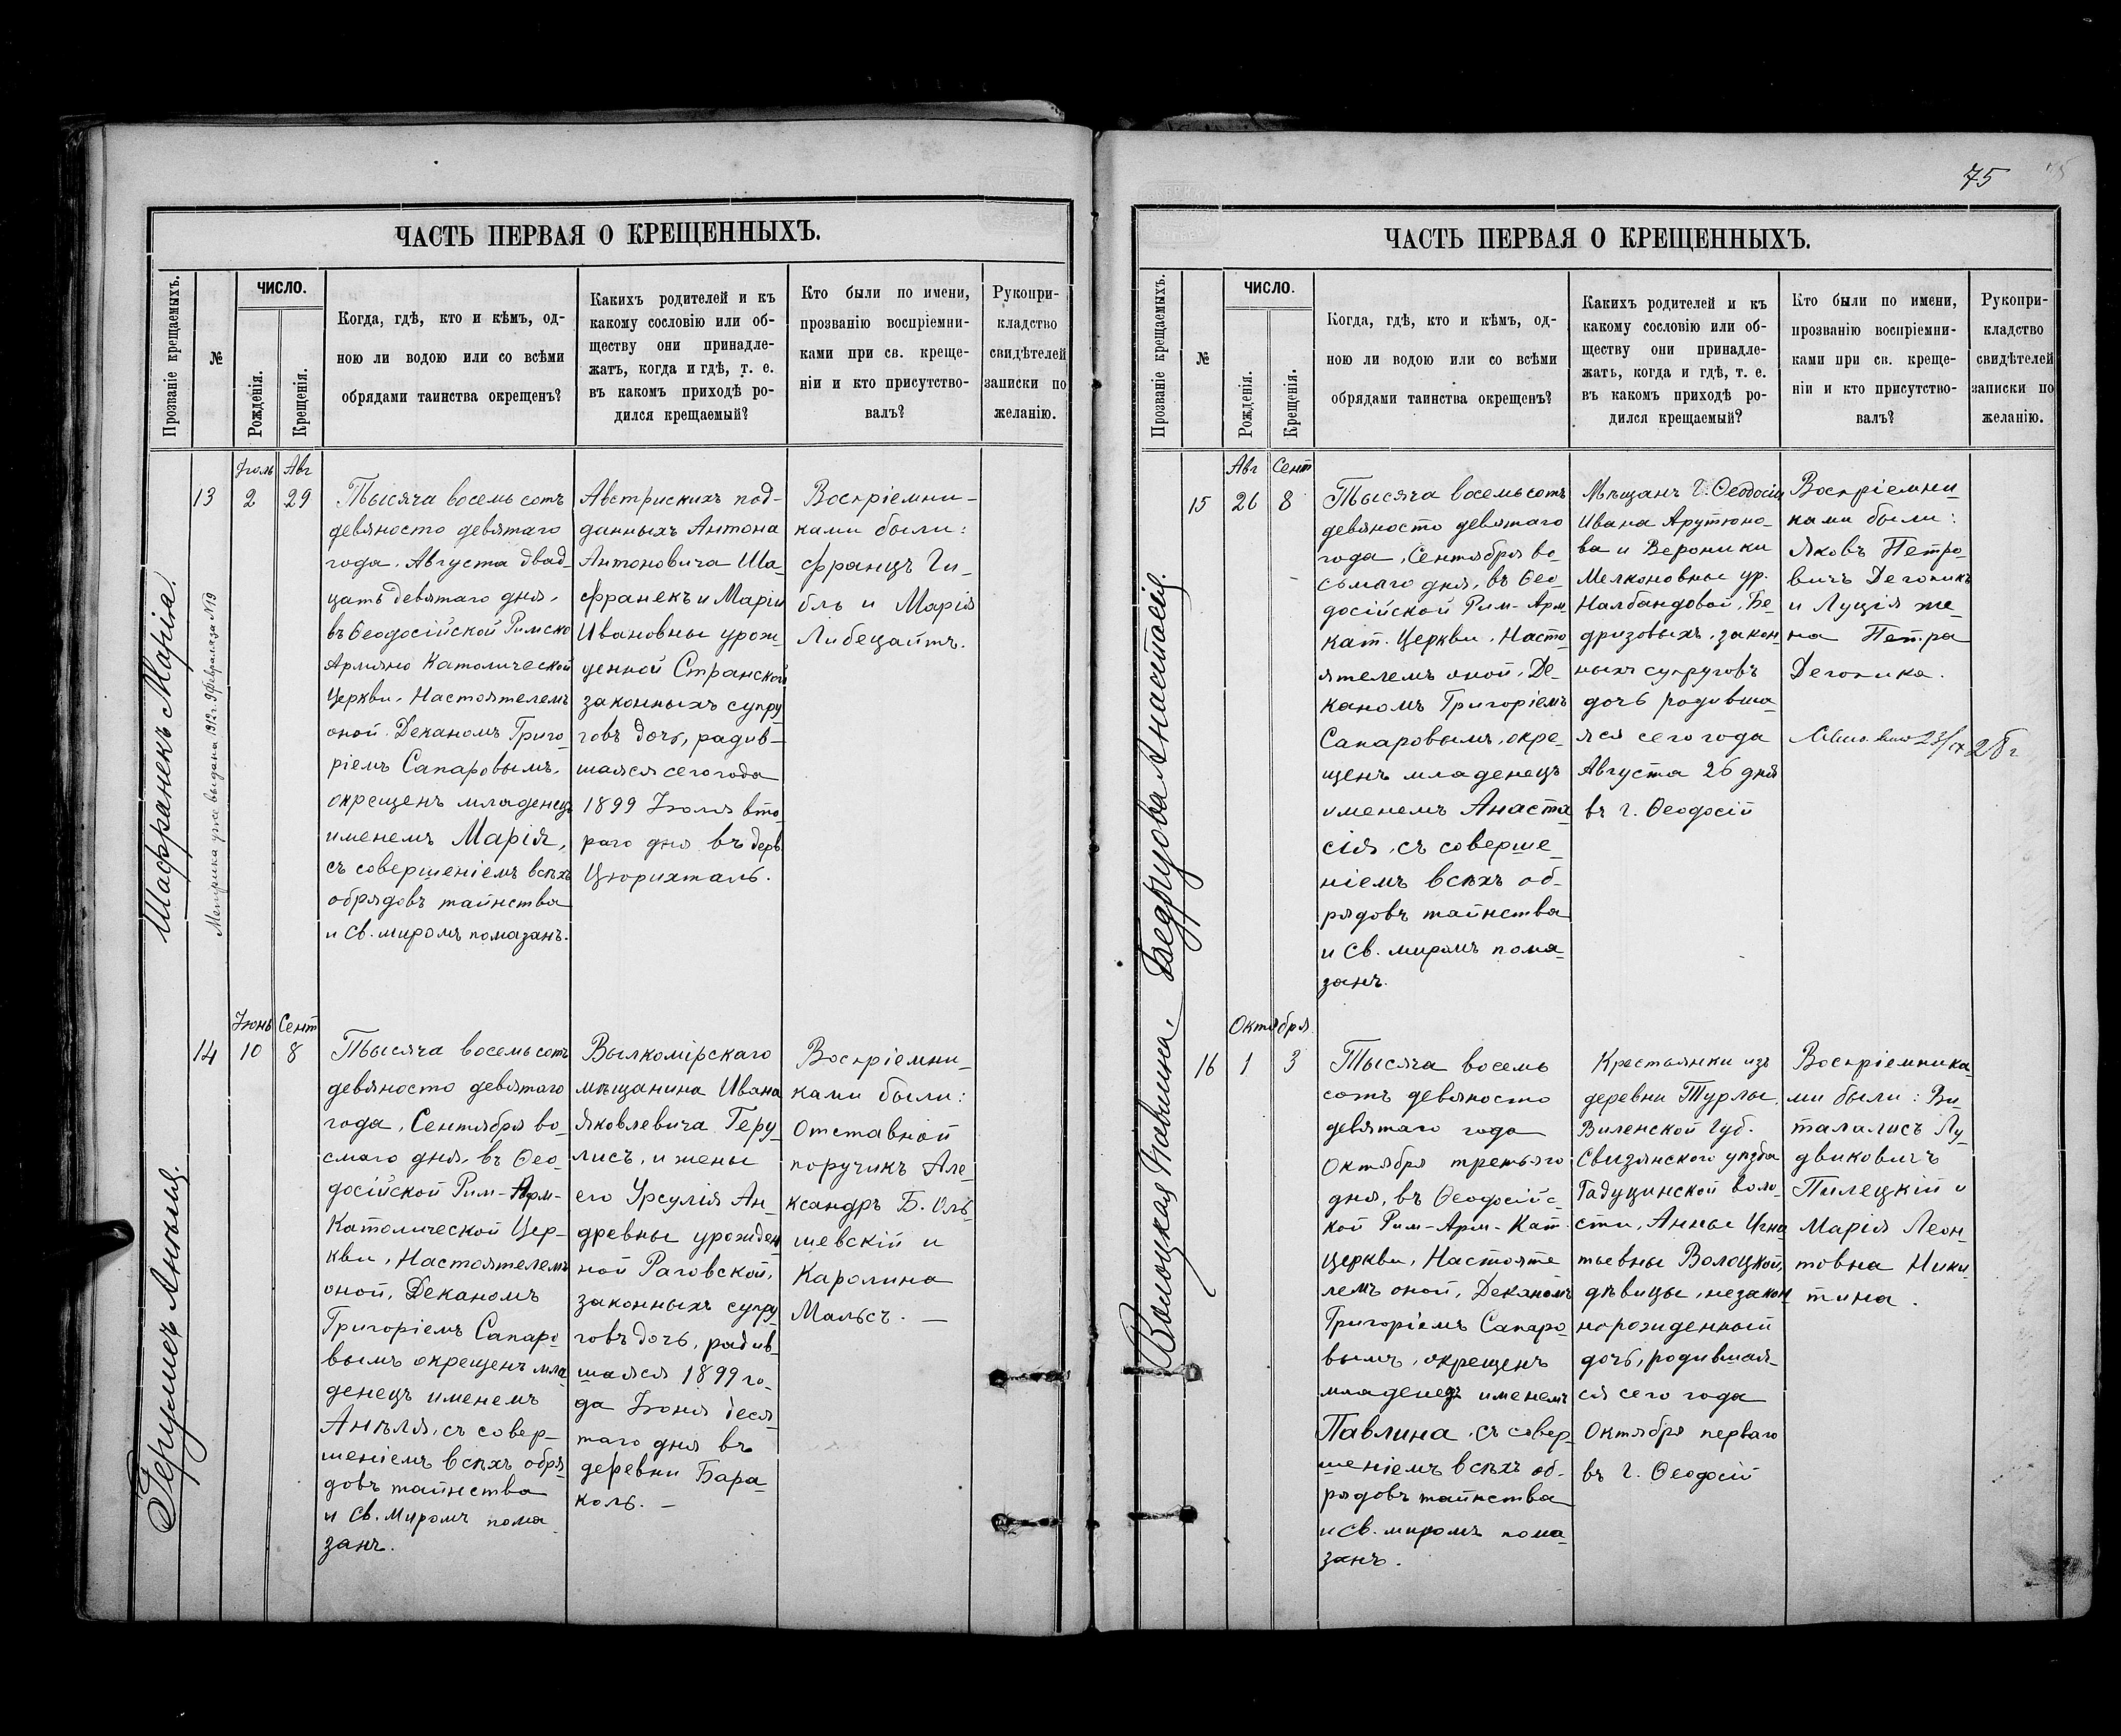 ЧАСТЬ ПЕРВАЯ О КРЕЩЕННЫХЪ.
Прозваніе крещаемыхъ.
№
ЧИСЛО.
Рожденія.
Крещенія.
Когда, гдѣ, кто и кѣмъ, од-
ною ли водою или со всѣми
обрядами таинства окрещенъ?
Какихъ родителей и къ
какому сословію или об-
ществу они принадле-
жатъ, когда и гдѣ, т. е.
въ какомъ приходѣ ро-
дился крещаемый?
Кто были по имени,
прозванію воспріемни-
ками при св. креще-
ніи и кто присутство-
валъ?
Рукопри-
кладство
свидѣтелей
записки по
желанію.
Шафранекъ Марія.
Метрика уже выдана 1912 г. 9 февраля за № 19
13
Іюль
2
Авг
29
Тысяча восемь сотъ
девяносто девятаго
года, Августа двад-
цать девятаго дня,
въ Ѳеодосійской Римско
Армяно Католической
Церкви, Настоятелемъ
оной Деканомъ Григо-
ріемъ Сапаровымъ,
окрещенъ младенецъ
именемъ Марія,
съ совершеніемъ всѣхъ
обрядовъ таинства
и Св. миромъ помазанъ.
Австрискихъ под-
данныхъ Антона
Антоновича Ша-
франекъ и Маріи
Ивановны урож-
денной Странской
законныхъ супру
говъ дочь, радив-
шаяся сего года
1899 Іюля вто-
раго дня въ дерв
Цюрихталь.
Воспріемни-
ками были:
Францъ Ги-
бль и Марія
Либецайтъ.
Герулисъ Анѣля.
14
Іюнь
10
Сент
8
Тысяча восемь сотъ
девяносто девятаго
года, Сентября во-
смаго дня, въ Ѳео-
досійской Рим-Арм-
Католической Цер-
кви, Настоятелемъ
оной, Деканомъ
Григоріемъ Сапаро-
вымъ окрещенъ мла
денецъ именемъ
Анѣля, съ совер-
шеніемъ всѣхъ обря
довъ таинства
и Св. Миромъ пома
занъ.
Вылкомірскаго
мѣщанина Ивана
Яковлевича Геру-
лисъ, и жены
его Урсулія Ан-
древны урожден
ной Раговской,
законныхъ супру
говъ дочь, радив-
шаяся 1899 го-
да Іюня деся
таго дня въ
деревни Бара-
коль. -
Воспріемни-
ками были:
Отставной
поручикъ Але-
ксандръ Б. Оль-
шевскій и
Каролина
Мальсъ. -
75
ЧАСТЬ ПЕРВАЯ О КРЕЩЕННЫХЪ.
Прозваніе крещаемыхъ.
№
ЧИСЛО.
Рожденія.
Крещенія.
Когда, гдѣ, кто и кѣмъ, од-
ною ли водою или со всѣми
обрядами таинства окрещенъ?
Какихъ родителей и къ
какому сословію или об-
ществу они принадле-
жатъ, когда и гдѣ, т. е.
въ какомъ приходѣ ро-
дился крещаемый?
Кто были по имени,
прозванію воспріемни-
ками при св. креще-
ніи и кто присутство-
валъ?
Рукопри-
кладство
свидѣтелей
записки по
желанію.
Бедризова Анастасія.
15
Авг
26
Сент
8
Тысяча восемь сотъ
девяносто девятаго
года, Сентября во
сьмаго дня, въ Ѳео-
досійской Рим-Арм
кат. Церкви, Насто
ятелемъ оной, Де-
каномъ Григоріемъ
Сапаровымъ, окре-
щенъ младенецъ
именемъ Анаста
сія, съ соверше-
ніемъ всѣхъ об-
рядовъ таинства
и Св. миромъ пома-
занъ.
Мѣщанъ г. Ѳеодосіи
Ивана Арутюно-
ва и Вероники
Мелконовны ур.
Налбандовой, Бе-
дризовыхъ, закон
ныхъ супруговъ
дочь родивша-
яся сего года
Августа 26 дня
въ г. Ѳеодосій
Воспріемни-
ками были:
Яковъ Петро-
вичъ Дегоникъ
и Луція же-
на Петра
Дегоника.
Волоцкая Павлина.
16
Октября
1
3
Тысяча восемь
сотъ девяносто
девятаго года
Октября третьяго
дня, въ Ѳеодосійс-
кой Рим-Арм-Кат
церкви, Настояте
лемъ оной, Деканомъ
Григоріемъ Сапаро-
вымъ, окрещенъ
младенецъ именемъ
Павлина, съ совер-
шеніемъ всѣхъ об-
рядовъ таинства
и Св. миромъ пома-
занъ.
Крестьянки изъ
деревни Турлы,
Виленской Губ.
Свизянского уѣзда
Гадуцинской воло-
сти, Анны Игна
тьевны Волоцкой,
дѣвицы, незакон-
норожденный
дочь, родившая-
ся сего года
Октября перваго
въ г. Ѳеодосій
Воспріемника-
ми были: Ви-
талалисъ Лу-
двиковичъ
Пилецкій и
Марія Леон-
товна Ники-
тина.